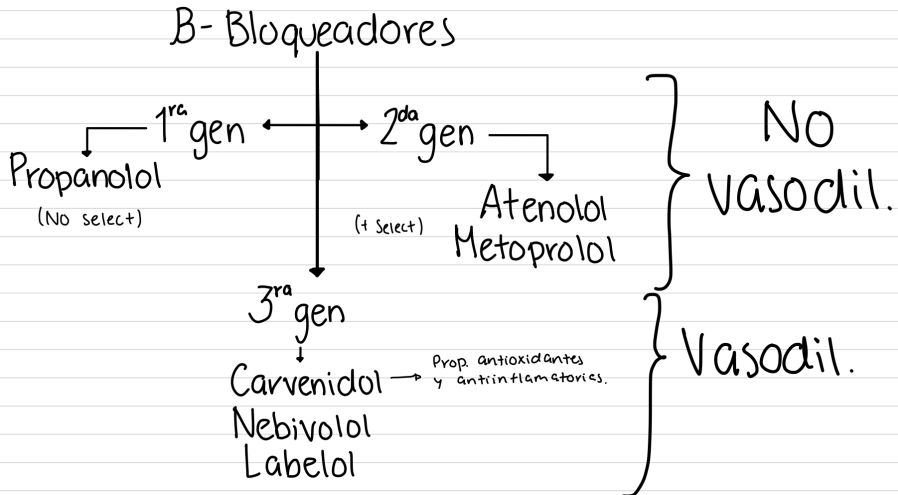 B- Bloqueadores
1ra gen
2da gen
Propanolol
(No select)
Atenolol
Metoprolol
(+ select)
No
vasodil.
3ra gen
Carvenidol
Prop. antioxidantes
y antiinflamatorias.
Nebivolol
Labelol
Vasodil.